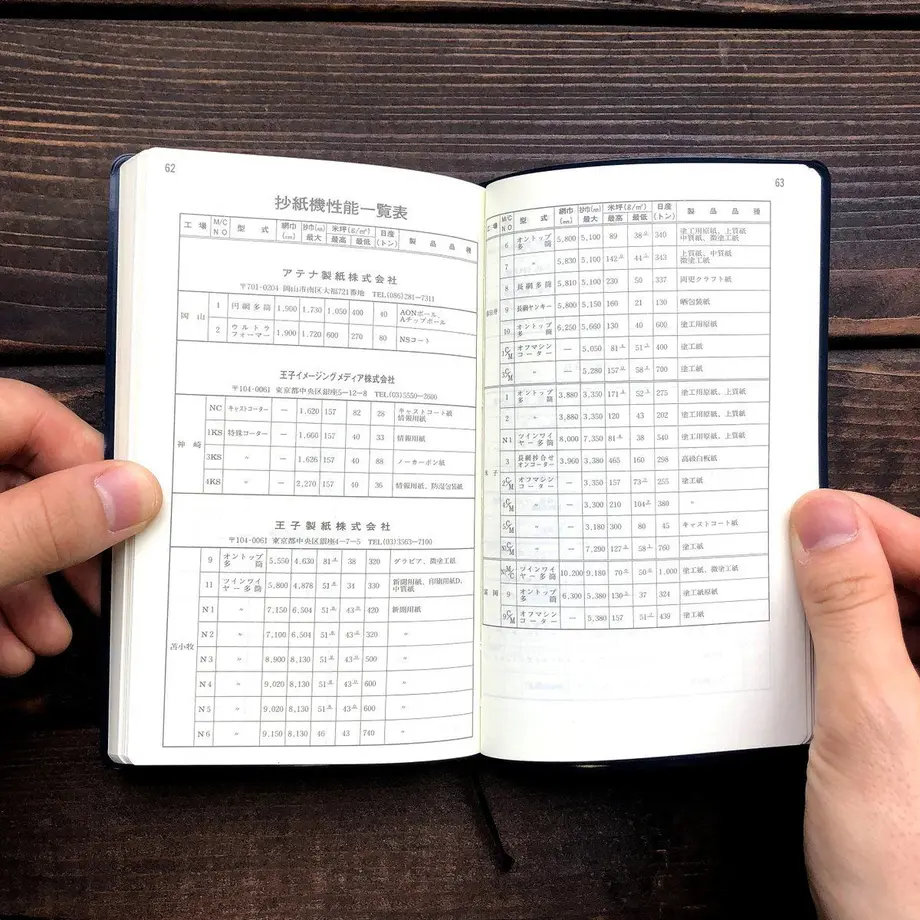 62
抄紙機性能一覧表
工場 M/C NO 型式 網巾(㎜) 抄巾(㎜)最大 米坪(g/㎡) 最高 最低 日産(トン) 製品品種
アテナ製紙株式会社
〒701-0304 岡山市南区大福721番地 TEL(086)281-7311
岡山 1 円網多筒 1,900 1,730 1,050 400 40 AONボール、Aチップボール
2 ウルトラフォーマー 1,900 1,720 600 270 80 NSコート
王子イメージングメディア株式会社
〒104-0061 東京都中央区銀座5-12-8 TEL(03)5550-2600
神崎 NC キャストコーター — 1,620 157 82 28 キャストコート紙 情報用紙
1KS 特殊コーター — 1,660 157 40 33 情報用紙
3KS 〃 — 1,626 157 40 88 ノーカーボン紙
4KS 〃 — 2,270 157 40 36 情報用紙、防湿包装紙
王子製紙株式会社
〒104-0061 東京都中央区銀座4-7-5 TEL(03)3563-7100
苫小牧 9 オントップ多筒 5,550 4,630 81 38 320 グラビア、微塗工紙
11 ツインワイヤー多筒 5,800 4,878 51 34 330 新聞用紙、印刷用紙D、中質紙
N1 〃 7,150 6,504 51 43 420 新聞用紙
N2 〃 7,100 6,504 51 43 320 〃
N3 〃 8,900 8,130 51 43 500 〃
N4 〃 9,020 8,130 51 43 600 〃
N5 〃 9,020 8,130 51 43 600 〃
N6 〃 9,150 8,130 46 43 740 〃
63
工場 M/C NO 型式 網巾(㎜) 抄巾(㎜)最大 米坪(g/㎡) 最高 最低 日産(トン) 製品品種
6 オントップ多筒 5,800 5,100 89 38 340 塗工用原紙、上質紙 中質紙、微塗工紙
7 〃 5,830 5,100 142 44 343 上質紙、中質紙 微塗工紙
8 長網多筒 5,810 5,100 230 50 337 両更クラフト紙
9 長網ヤンキー 5,800 5,150 160 21 130 晒包装紙
10 オントップ多筒 6,250 5,660 130 40 600 塗工用原紙
オフマシンコーター — 5,050 81 51 400 塗工紙
〃 — 5,280 157 58 700 塗工紙
1 オントップ多筒 3,880 3,350 171 52 275 塗工用原紙、上質紙
2 〃 3,880 3,350 120 43 202 塗工用原紙、上質紙
N1 ツインワイヤー多筒 8,000 7,350 81 38 540 塗工用原紙、上質紙
3 長網抄合せオンコーター 3,960 3,380 465 160 298 高級白板紙
オフマシンコーター — 3,350 157 73 255 塗工紙
〃 — 3,300 210 104 380 〃
〃 — 3,180 300 80 45 キャストコート紙
〃 — 7,290 127 58 760 塗工紙
ツインワイヤー多筒 10,200 9,180 70 50 1,000 塗工紙、微塗工紙
富岡 9 オントップ多筒 6,300 5,380 130 37 324 塗工紙原紙
オフマシンコーター — 5,380 157 51 439 塗工紙